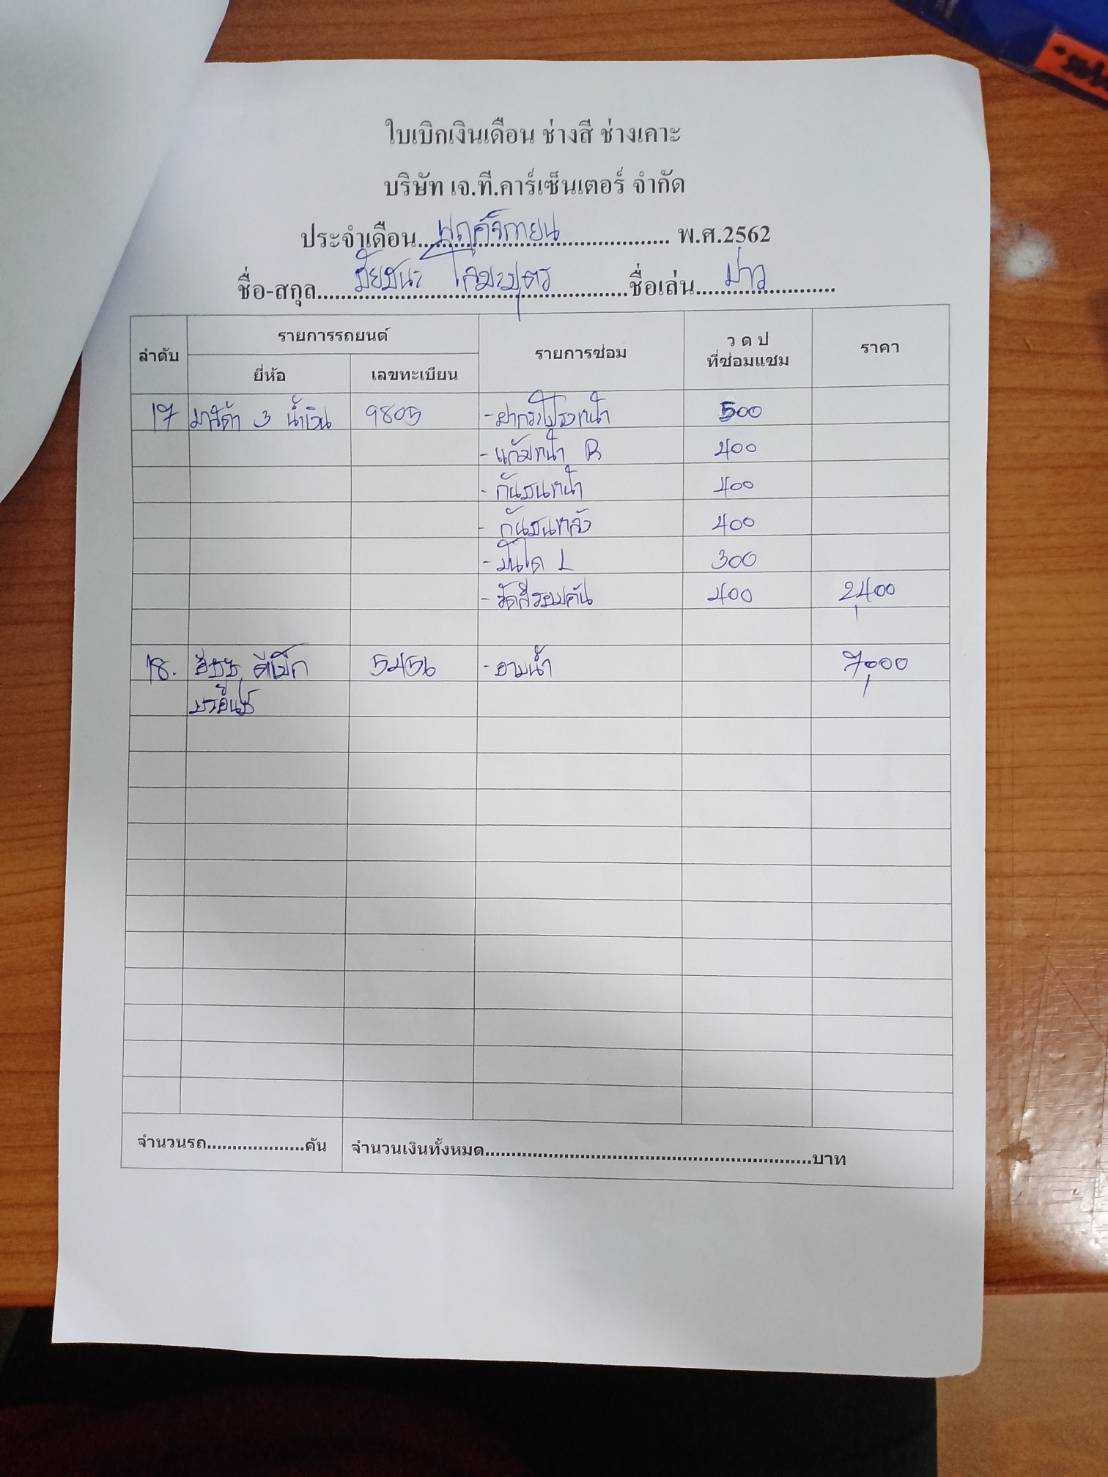 ใบเบิกเงินเดือน ช่างสี ช่างเคาะ
บริษัท เจ.ที.คาร์เซ็นเตอร์ จำกัด
ประจำเดือน พฤศจิกายน พ.ศ.2562
ชื่อ-สกุล ชัยชนะ ชื่อเล่น
ลำดับ รายการรถยนต์ รายการซ่อม ว ด ป ที่ซ่อมแซม ราคา
ยี่ห้อ เลขทะเบียน
17 มาสด้า 3 น้ำเงิน 9805 -ฝากระโปรงหน้า 500
-แก้มหน้า R 400
- กันชนหน้า 400
- กันชนหลัง 400
-บันได L 300
-ขัดสีรอบคัน 400 2,400
18. อีซูซุ ดีแม็ก 5456 -อาบน้ำ 7,000
จำนวนรถ....................คัน จำนวนเงินทั้งหมด..............................................................บาท